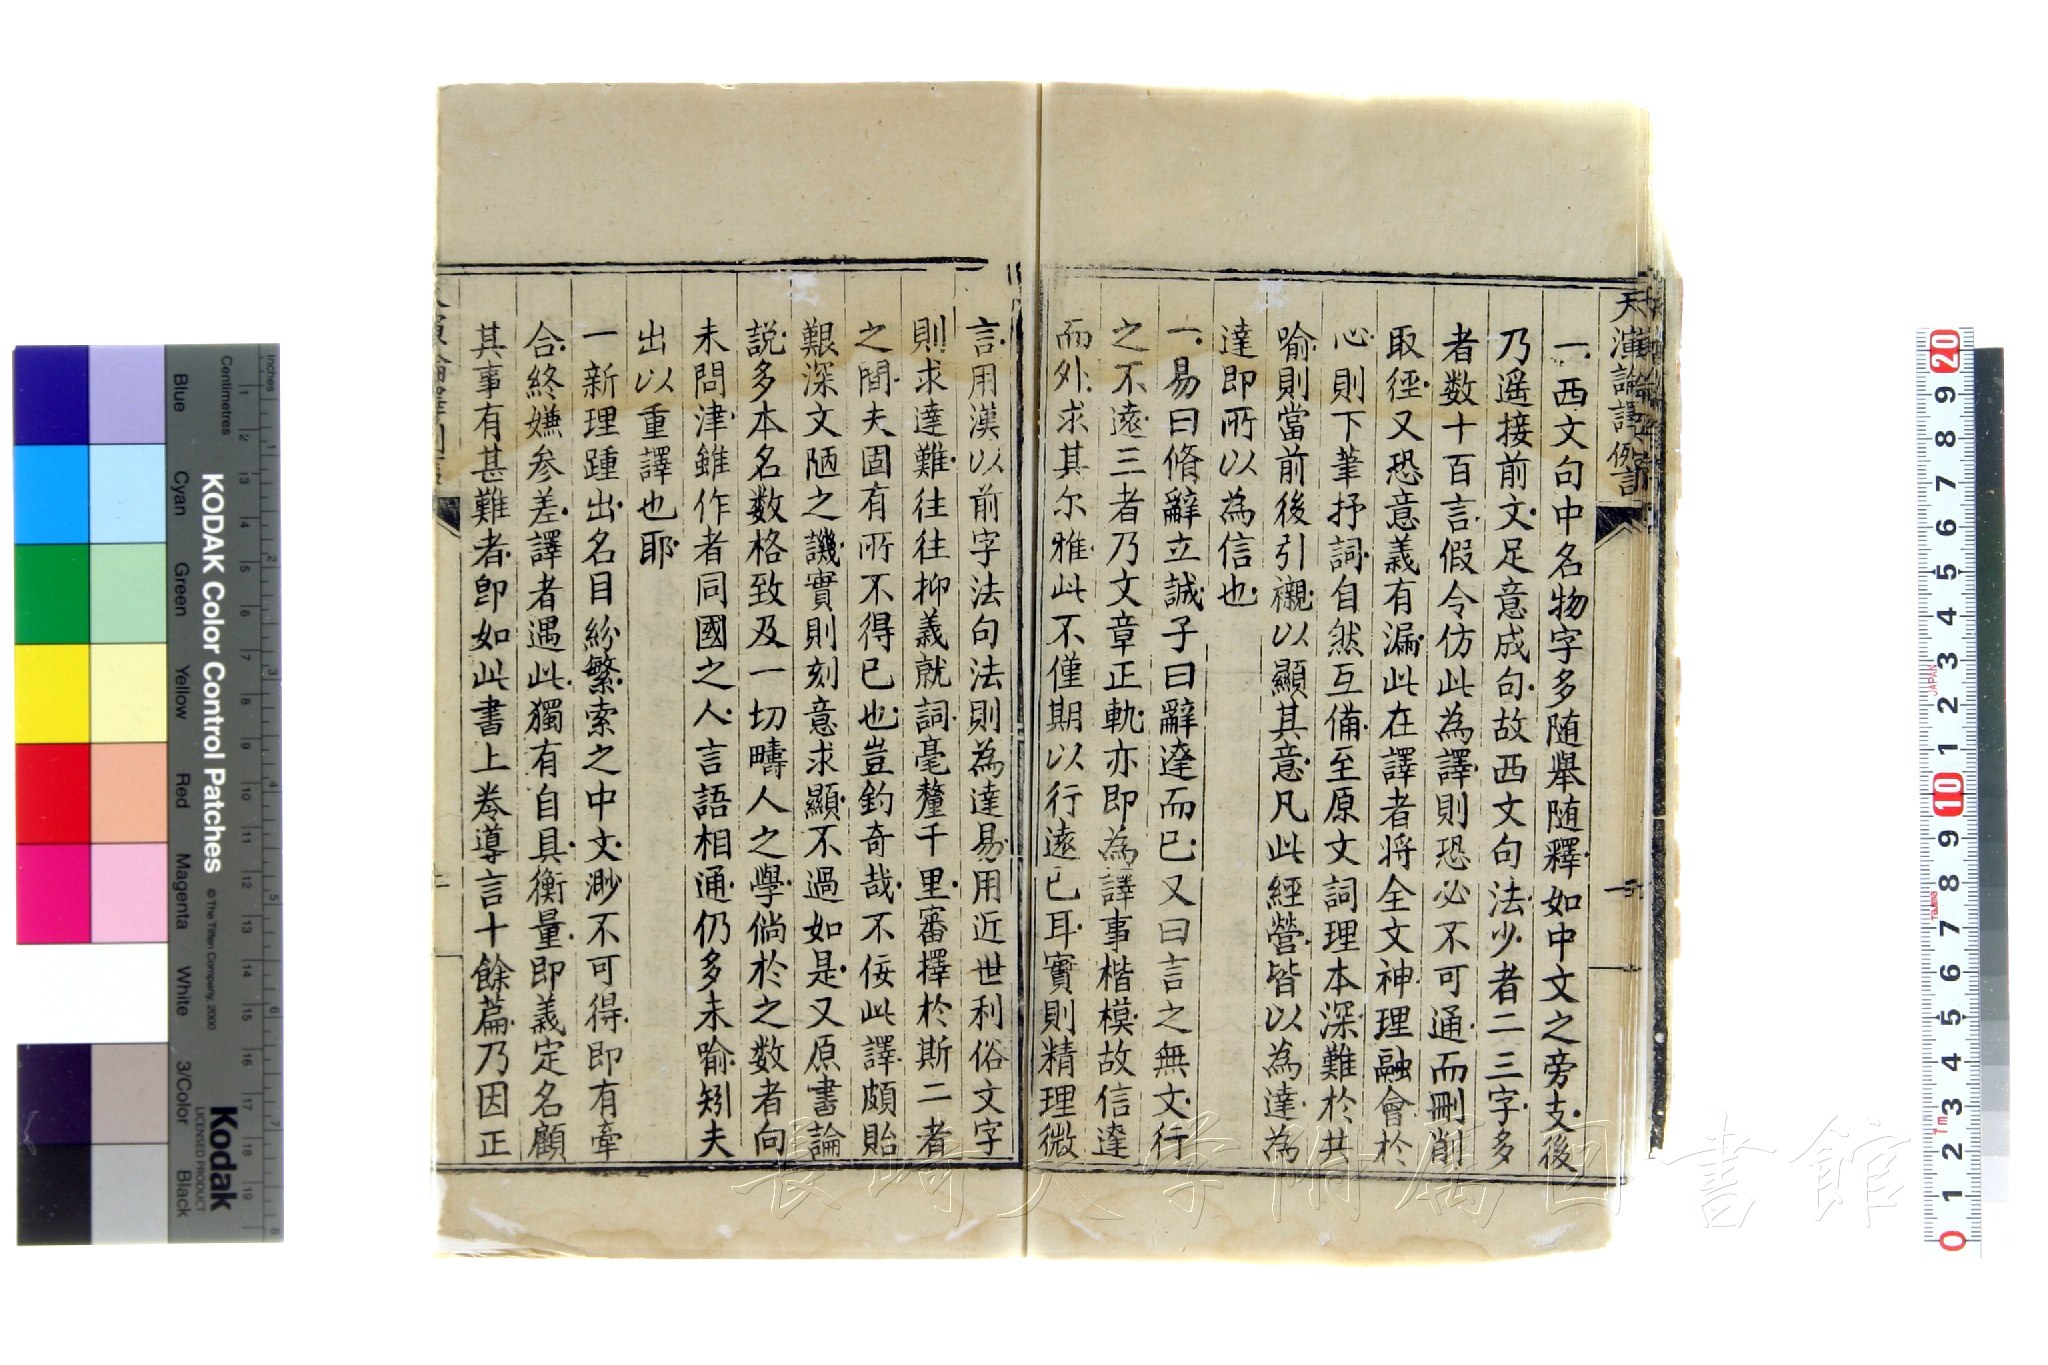 天演論譯例言
一西文句中名物字多随舉随釋如中文之旁支後
乃遥接前文足意成句故西文句法少者二三字多
者数十百言假令仿此為譯則恐必不可通而刪削
取徑又恐意義有漏此在譯者将全文神理融會於
心則下筆抒詞自然互備至原文詞理本深難於共
喻則當前後引襯以顯其意凡此經營皆以為達為
達即所以為信也
一易曰脩辭立誠子曰辭達而已又曰言之無文行
之不遠三者乃文章正軌亦即為譯事楷模故信達
而外求其尔雅此不僅期以行遠已耳實則精理微
言用漢以前字法句法則為達易用近世利俗文字
則求達難往往抑義就詞毫釐千里審擇於斯二者
之間夫固有所不得已也豈釣奇哉不佞此譯頗貽
艱深文陋之譏實則刻意求顯不過如是又原書論
説多本名数格致及一切疇人之學倘於之数者向
未問津雖作者同國之人言語相通仍多未喻矧夫
出以重譯也耶
一新理踵出名目紛繁索之中文渺不可得即有牽
合終嫌参差譯者遇此獨有自具衡量即義定名顧
其事有甚難者即如此書上卷導言十餘篇乃因正
長崎大学附属図書館
KODAK Color Control Patches
© The Tiffen Company, 2000
Kodak
LICENSED PRODUCT
Inches
Centimetres
Blue
Cyan
Green
Yellow
Red
Magenta
White
3/Color
Black
1 2 3 4 5 6 7 8 9 10 11 12 13 14 15 16 17 18 19
1 2 3 4 5 6 7 8
20 9 8 7 6 5 4 3 2 1 10 9 8 7 6 5 4 3 2 1 0
JAPAN
Tajima
7m